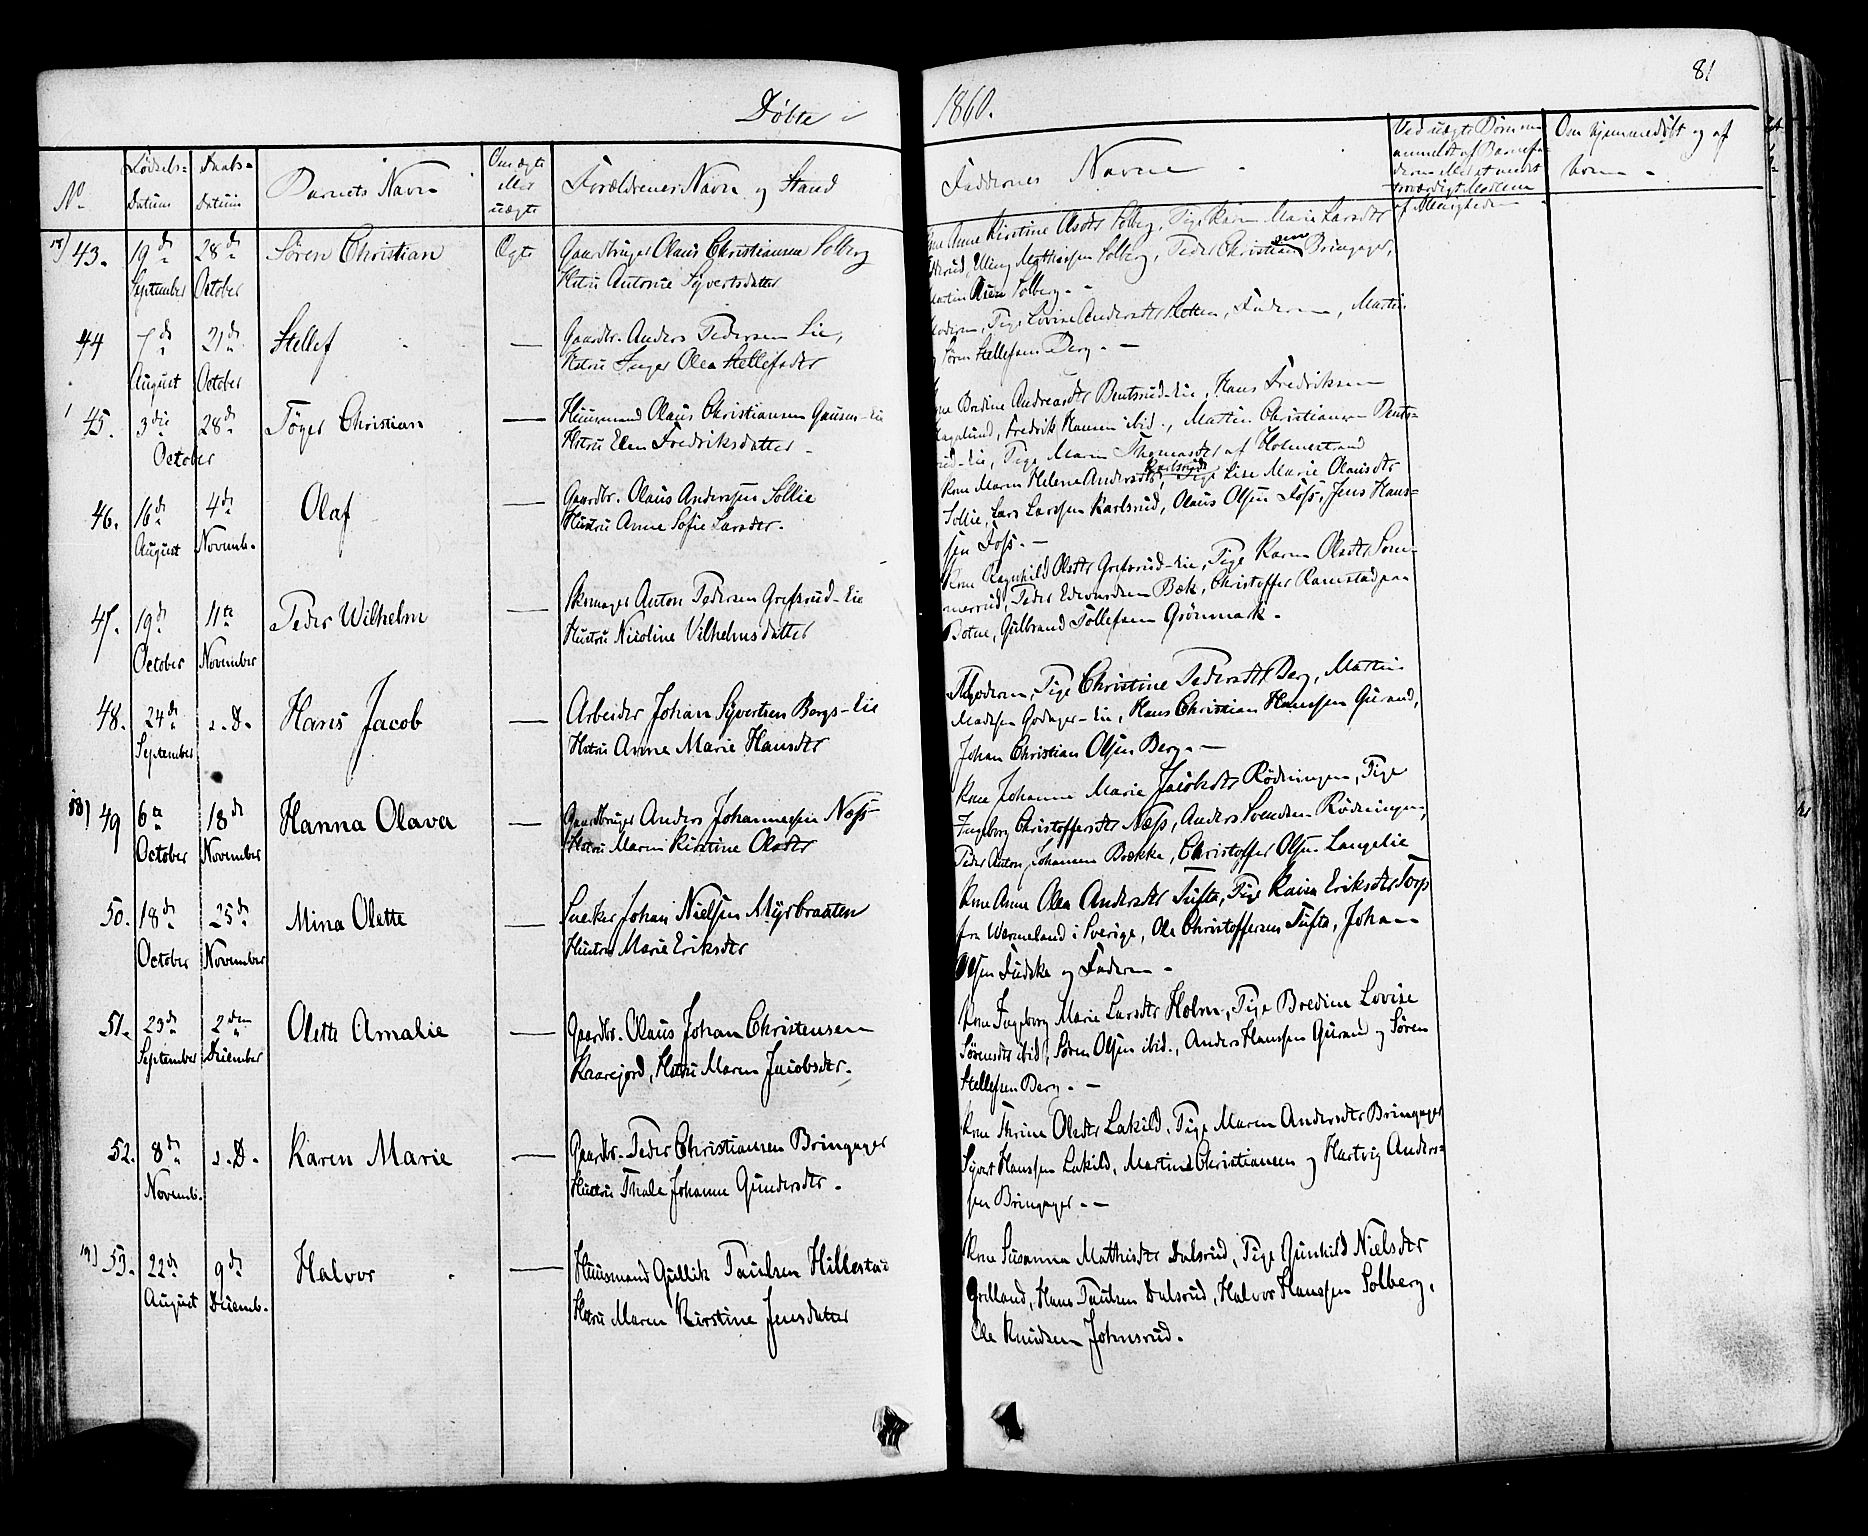 Døbte i 1860.
81
No
Fødsels-
Datum
Daabs-
Datum
Barnets Navn
Om ægte
eller
uægte
Forældrenes Navn og Stand
Faddernes Navne
Ved uægte Børn om
anmeldt af Barnefa-
deren eller et andet
troværdigt Medlem
af Menigheden
Om hjemmedøbt og af
hvem
43. 19de September 28de October Søren Christian Ægte
Gaardbruger Olaus Christiansen Solberg
Hustru Antonie Syvertsdatter
Anne Kirstine Olsdtr Solberg, Pige Karen Marie Larsdtr
Elling Mathiesen Solberg, Peder Christiansen Bringager,
Martin Olsen Solberg. -
44 7de August 21de October Stellef —
Gaardbr. Anders Pedersen Lie,
Hstru Inger Olea Stellefsdtr
Moderen, Pige Lovise Andersdtr Holtan, Faderen, Martin
Søren Stellefsen Berg. -
45. 3die October 28de Töger Christian —
Huusmand Olaus Christiansen Gausen-Eie
Hstru Elen Fredriksdatter
Kone Bredine Andreasdtr Bentsrud-Eie, Hans Fredriksen
Hagelund, Fredrik Hansen ibid., Martin Christiansen Bents-
rud-Eie, Pige Maren Thomasdtr af Holmestrand
46. 16de August 4de Novemb. Olaf —
Gaardbr. Olaus Anderssen Sollie
Hustru Anne Sofie Larsdtr.
Kone Maren Helena Andersdtr Karlsrud, Pige Lise Marie Olausdtr
Sollie, Lars Larssen Karlsrud, Olaus Olsen Foss, Jens Hans-
sen Foss. -
47. 19de October 11te November Peder Wilhelm —
Skomager Anton Pedersen Grefsrud-Eie
Hustru Nicoline Vilhelmsdatter
Kone Ragnhild Olsdtr Grefsrud-Eie, Pige Karen Olsdtr Som-
merrud, Peder Edvardsen Bæk, Christoffer Ramstad paa
Botne, Gulbrand Tollefsen Grönmark.
48. 24de September s. D. Hans Jacob —
Arbeider Johan Syvertsen Bergs-Eie
Hstru Anne Marie Hansdtr
Moderen, Pige Christine Pedersdtr Berg, Martin
Madssen Godager-Eie, Hans Christian Hanssen Gurand,
Johan Christian Olsen Berg. -
49 6te October 18de November Hanna Olava —
Gaardbruger Anders Johannessen Næss
Hstru Maren Kirstine Olsdtr
Kone Johanne Marie Jacobsdtr Rødningen, Pige
Ingeborg Christoffersdtr Næss, Anders Svendsen Rødningen,
Peder Anton Johansen Brække, Christoffer Olsen Langelie
50. 18de October 25de November Mina Olette —
Snekker Johan Nielsen Myrbraaten
Hustru Marie Eriksdtr
Kone Anne Olea Andersdtr Tufta, Pige Kaisa Eriksdtr Torp
fra Wærmeland i Sverige, Ole Christoffersen Tufta, Johan
Olsen Fuske og Faderen -
51. 23de September 2den December Olette Amalie —
Gaardbr. Olaus Johan Christensen
Kaarejord, Hstru Maren Jacobsdtr.
Kone Ingeborg Marie Larsdtr Holm, Pige Bredine Lovise
Sørensdtr ibid, Søren Olsen ibid., Anders Hanssen Gurand og Søren
Stellefsen Berg. -
52. 8de Novemb. s. D. Karen Marie —
Gaardbr. Peder Christiansen Bringager
Hustru Thale Johanne Gundersdtr.
Kone Thrine Olsdtr Lakild, Pige Maren Andersdtr Bringager
Syvert Hanssen Lakild, Martin Christiansen og Hartvig Anders-
sen Bringager. -
53. 22de August 9de Decemb. Halvor —
Huusmand Gullik Paulsen Hillestad
Hstru Maren Kirstine Jensdatter
Kone Susanna Mathisdtr Dalsrud, Pige Gunhild Nielsdtr
Grelland, Hans Paulsen Dalsrud, Halvor Hanssen Solberg,
Ole Knudsen Johnsrud.